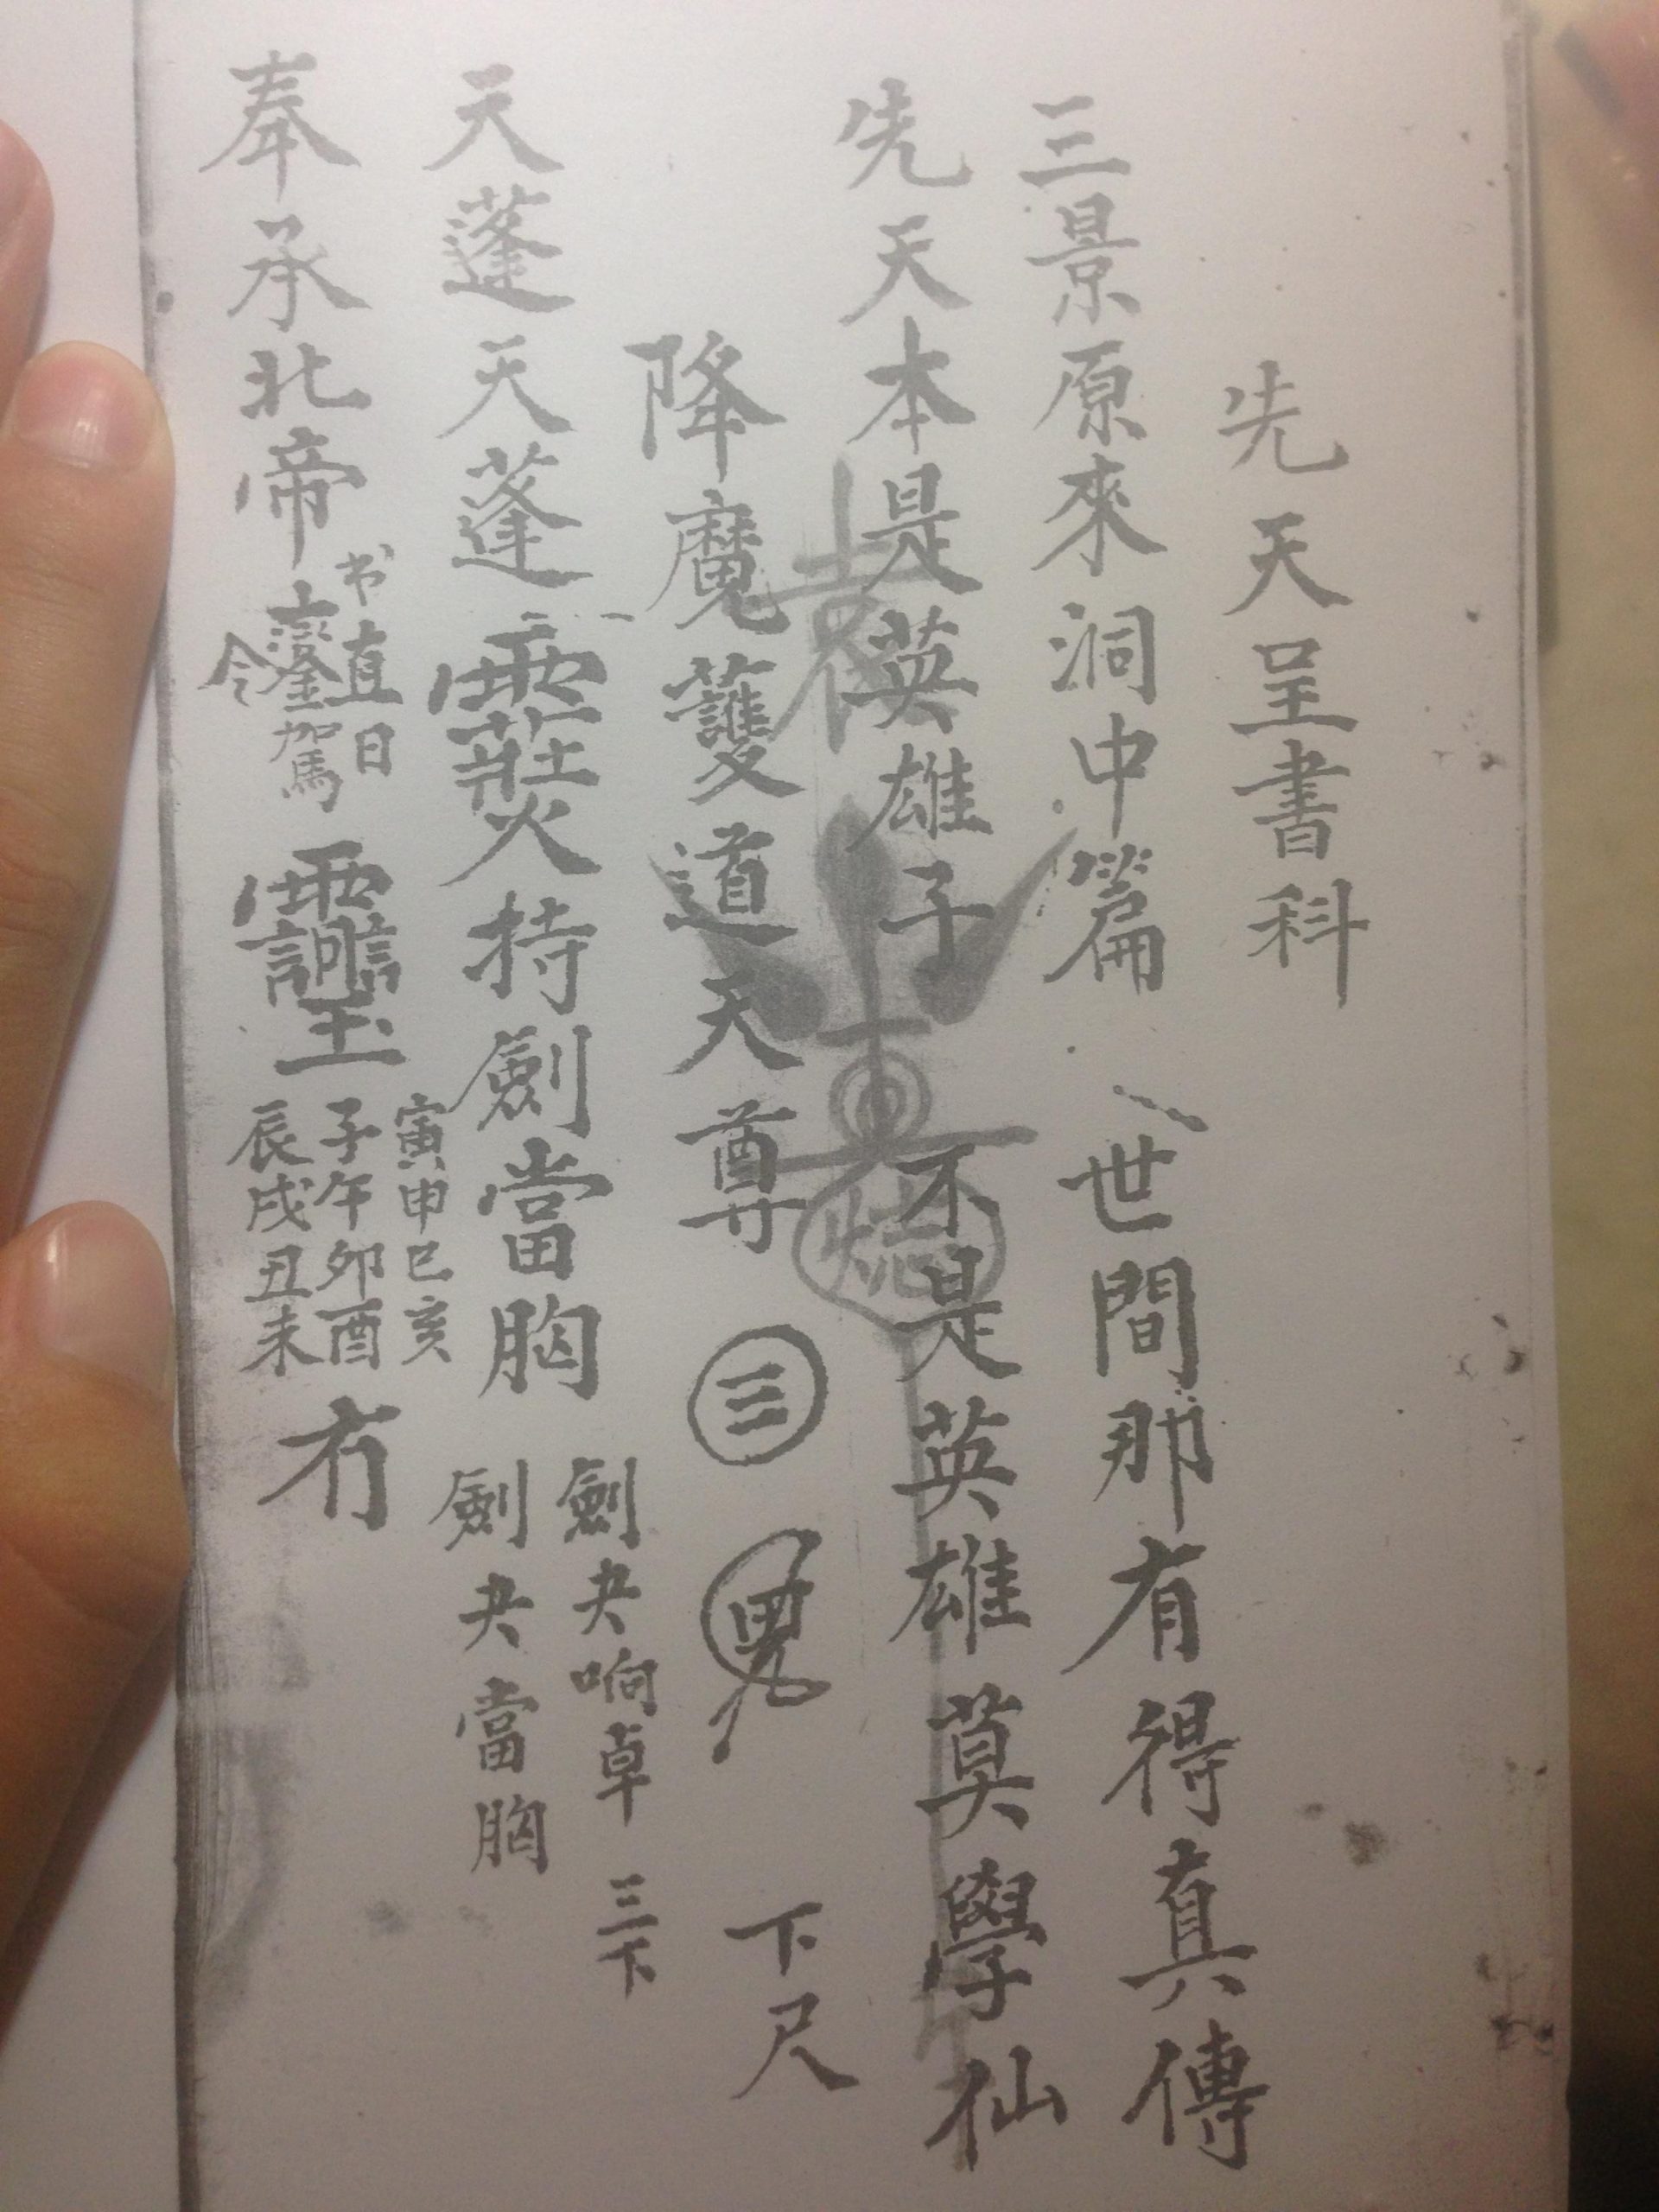 先天呈書科
三景原來洞中篇 世間那有得真傳
先天本是英雄子 不是英雄莫學仙
降魔護道天尊 ㊂ 下尺
天蓬天蓬 持劍當胸 劍夬响卓三下 劍夬當胸
奉承北帝 书直日 駕 令 寅申巳亥 子午卯酉 辰戌丑未